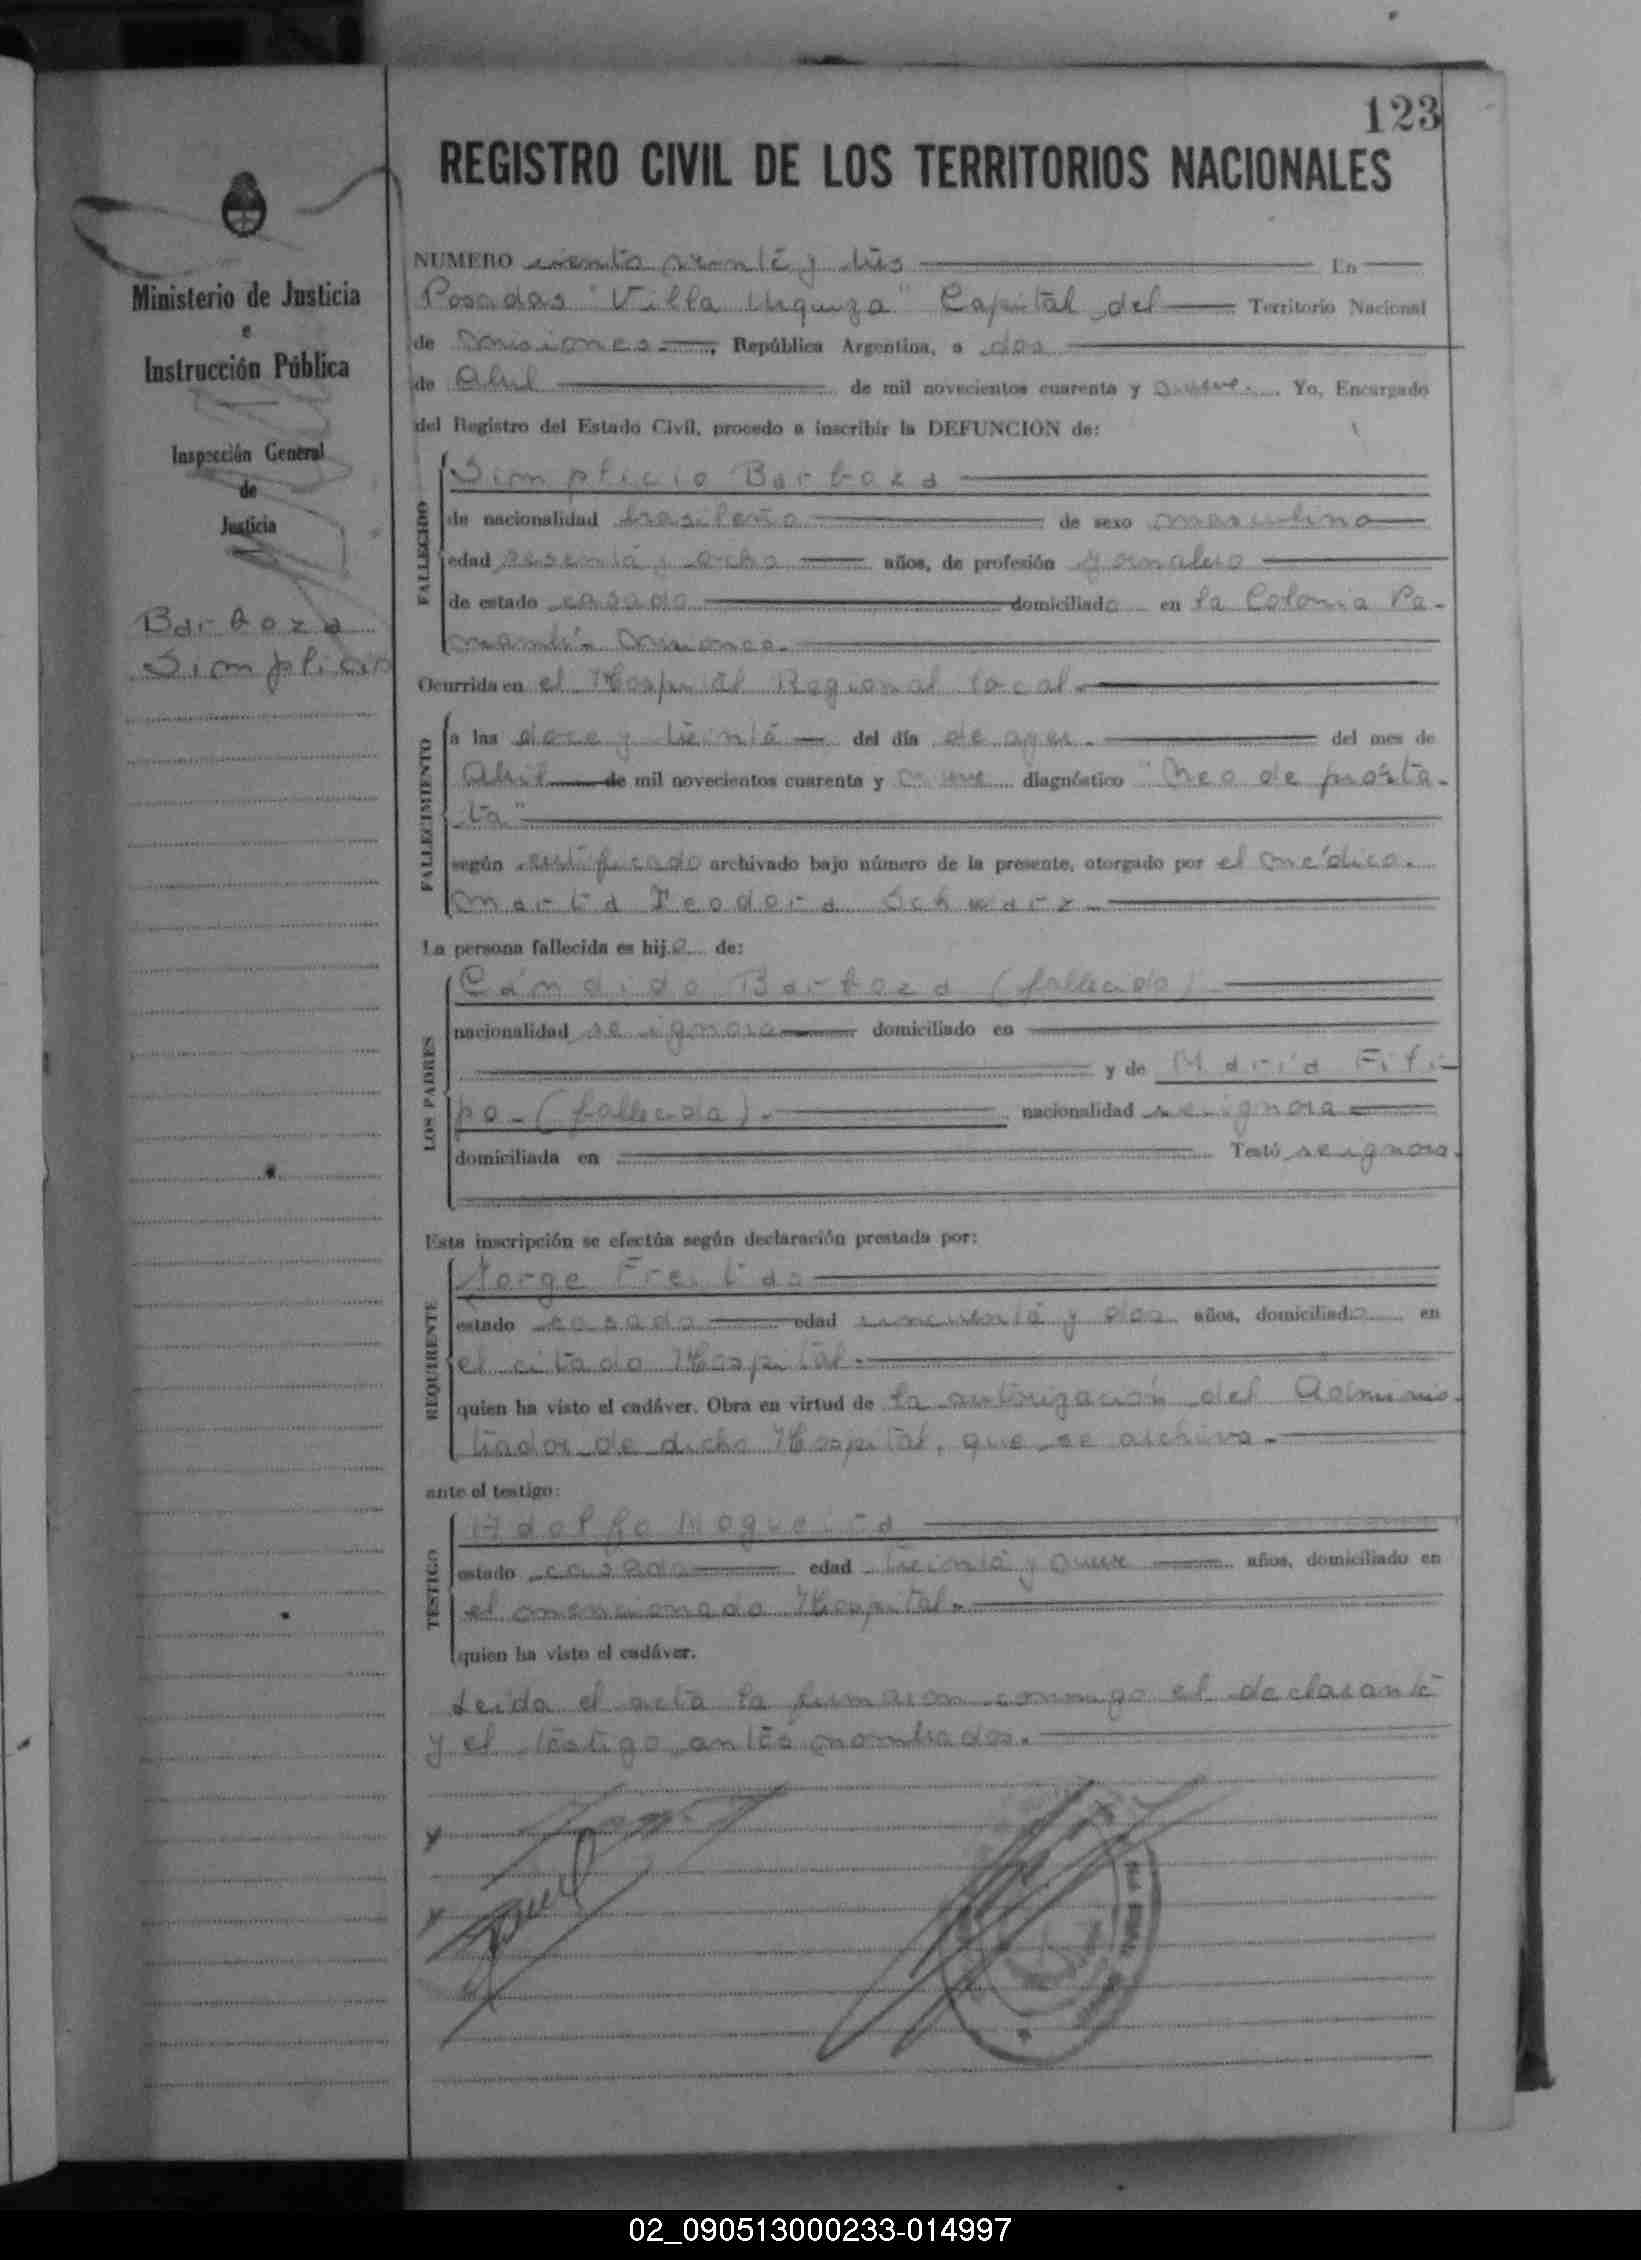 123
REGISTRO CIVIL DE LOS TERRITORIOS NACIONALES
Ministerio de Justicia
e
Instrucción Pública
Inspección General
de
Justicia
Barboza
Simplicio
NUMERO ciento veinte y tres En
Posadas "Villa Urquiza" Capital del Territorio Nacional
de Misiones.-, República Argentina, a dos
de Abril de mil novecientos cuarenta y nueve. Yo, Encargado
del Registro del Estado Civil, procedo a inscribir la DEFUNCION de:
FALLECIDO
Simplicio Barboza
de nacionalidad brasileña de sexo masculino
edad sesenta y ocho años, de profesión jornalero
de estado casado domiciliado en la Colonia Pa-
nambí- Misiones.-
Ocurrida en el Hospital Regional local.-
FALLECIMIENTO
a las doce y treinta del día de ayer.- del mes de
Abril de mil novecientos cuarenta y nueve diagnóstico "Neo de prósta-
ta"
según certificado archivado bajo número de la presente, otorgado por el médico.
Marta Teodora Schwarz.-
La persona fallecida es hijo de:
LOS PADRES
Cándido Barboza (fallecido)
nacionalidad se ignora domiciliado en
y de María Fili-
po-(fallecida).- nacionalidad se ignora
domiciliada en Testó se ignora.
Esta inscripción se efectúa según declaración prestada por:
REQUIRENTE
Jorge Freitas
estado casado edad cincuenta y dos años, domiciliado en
el citado Hospital.-
quien ha visto el cadáver. Obra en virtud de la autorización del Adminis-
trador de dicho Hospital, que se archiva.-
ante el testigo:
TESTIGO
Adolfo Nogueira
estado casado edad treinta y nueve años, domiciliado en
el mencionado Hospital.-
quien ha visto el cadáver.
Leída el acta la firmaron conmigo el declarante
y el testigo antes nombrados.-
02_090513000233-014997